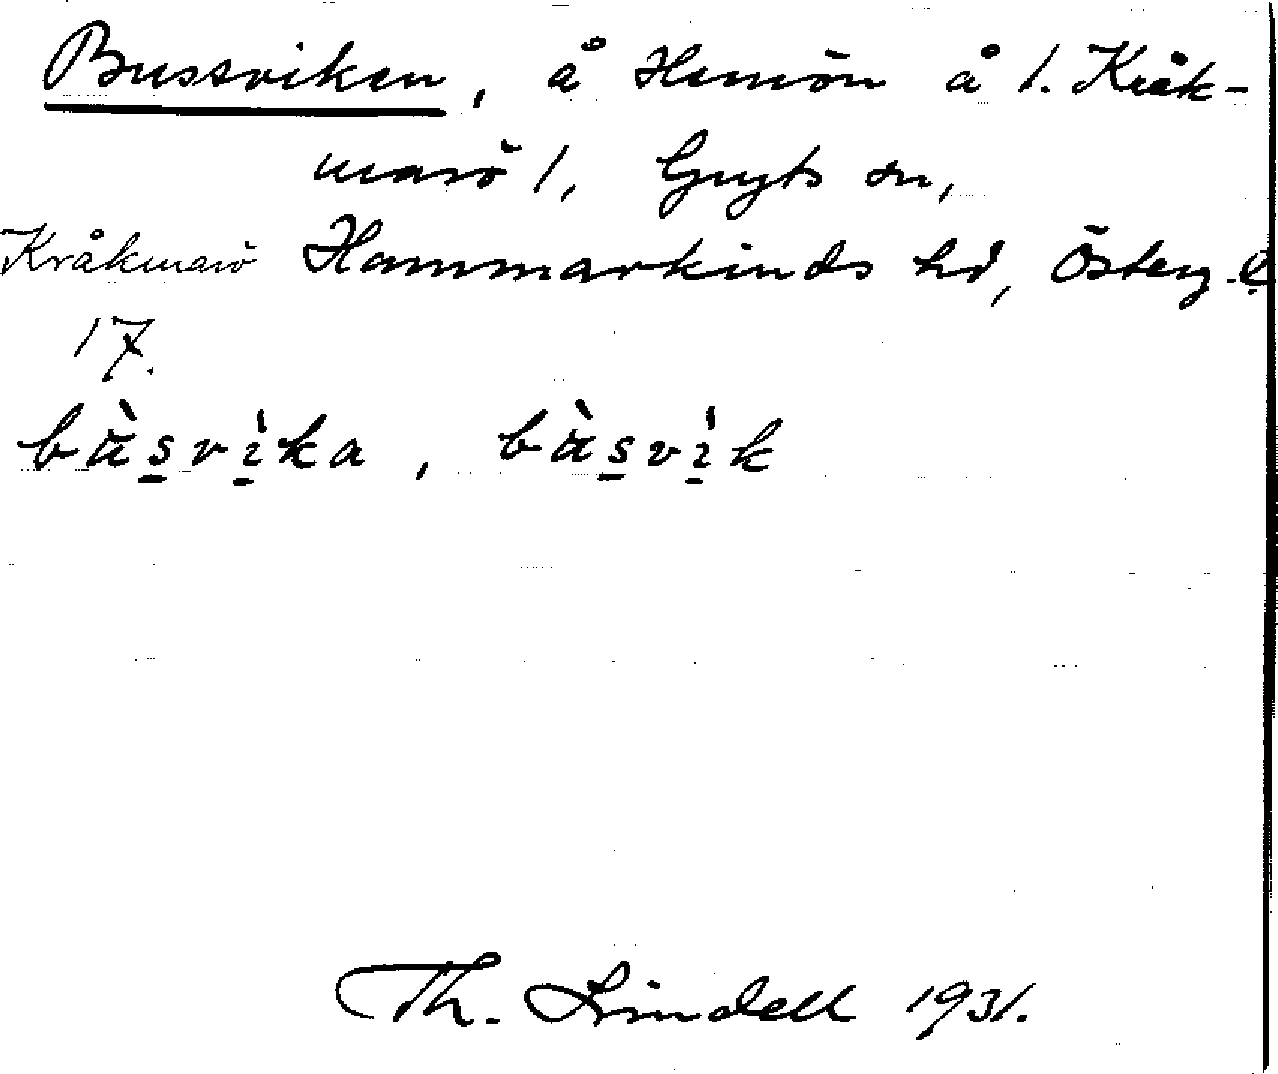 Bussviken, å Hemön å 1. Kråk-
marö 1, Gryts sn,
Kråkmarö Hammarkinds hd, Österg. l.
17.
bùsvìka, bùsvìk
Th. Lindell 1931.